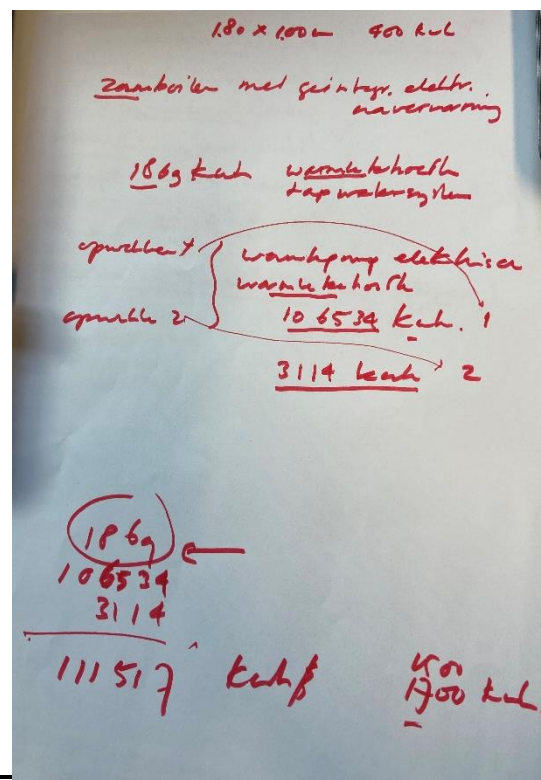 1.80 x 1,00m 400 kwh
Zonneboiler met geintegr. elektr.
naverwarming
1869 kwh warmtebehoefte
tapwatersysteem
opwekker 1 warmtepomp elektrisch
warmtebehoefte
106534 kwh. 1
opwekker 2
3114 kwh 2
1869
106534
3114
111517 kwh
1500
1700 kwh